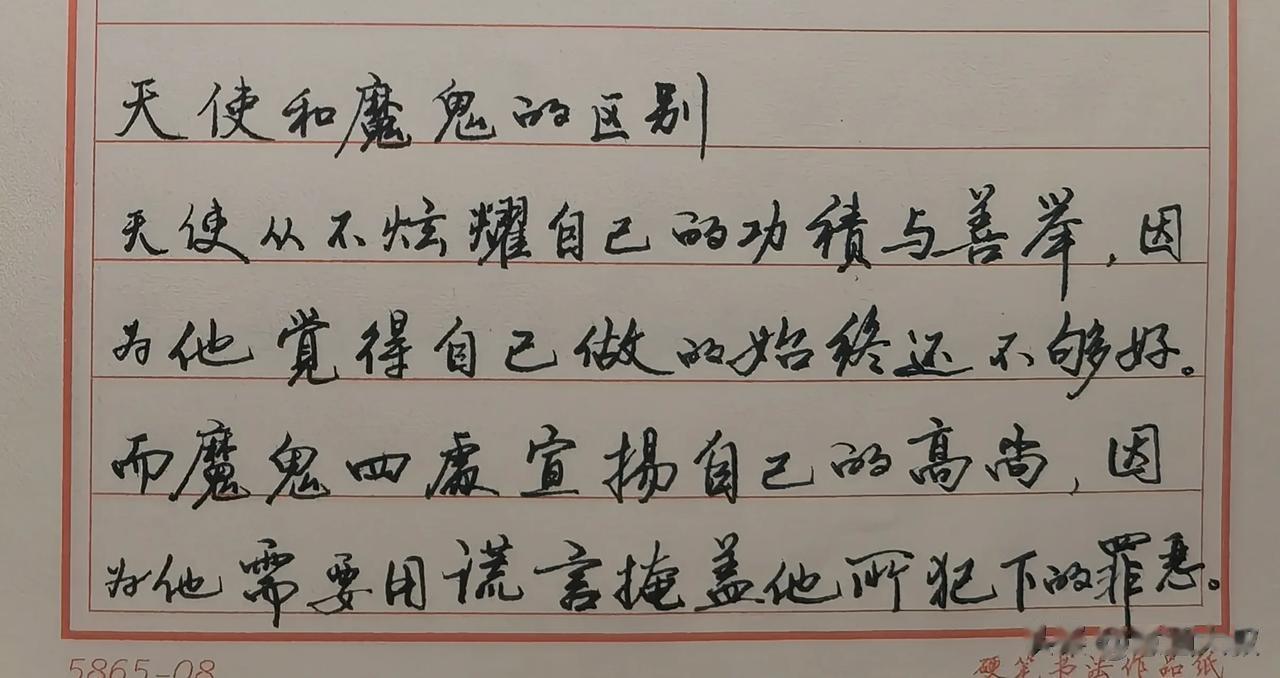 天使和魔鬼的区别
天使从不炫耀自己的功積与善举，因
为他覚得自己做的始终还不够好。
而魔鬼四處宣揚自己的高尚，因
为他需要用谎言掩盖他所犯下的罪恶。
5865-08
硬笔书法作品纸